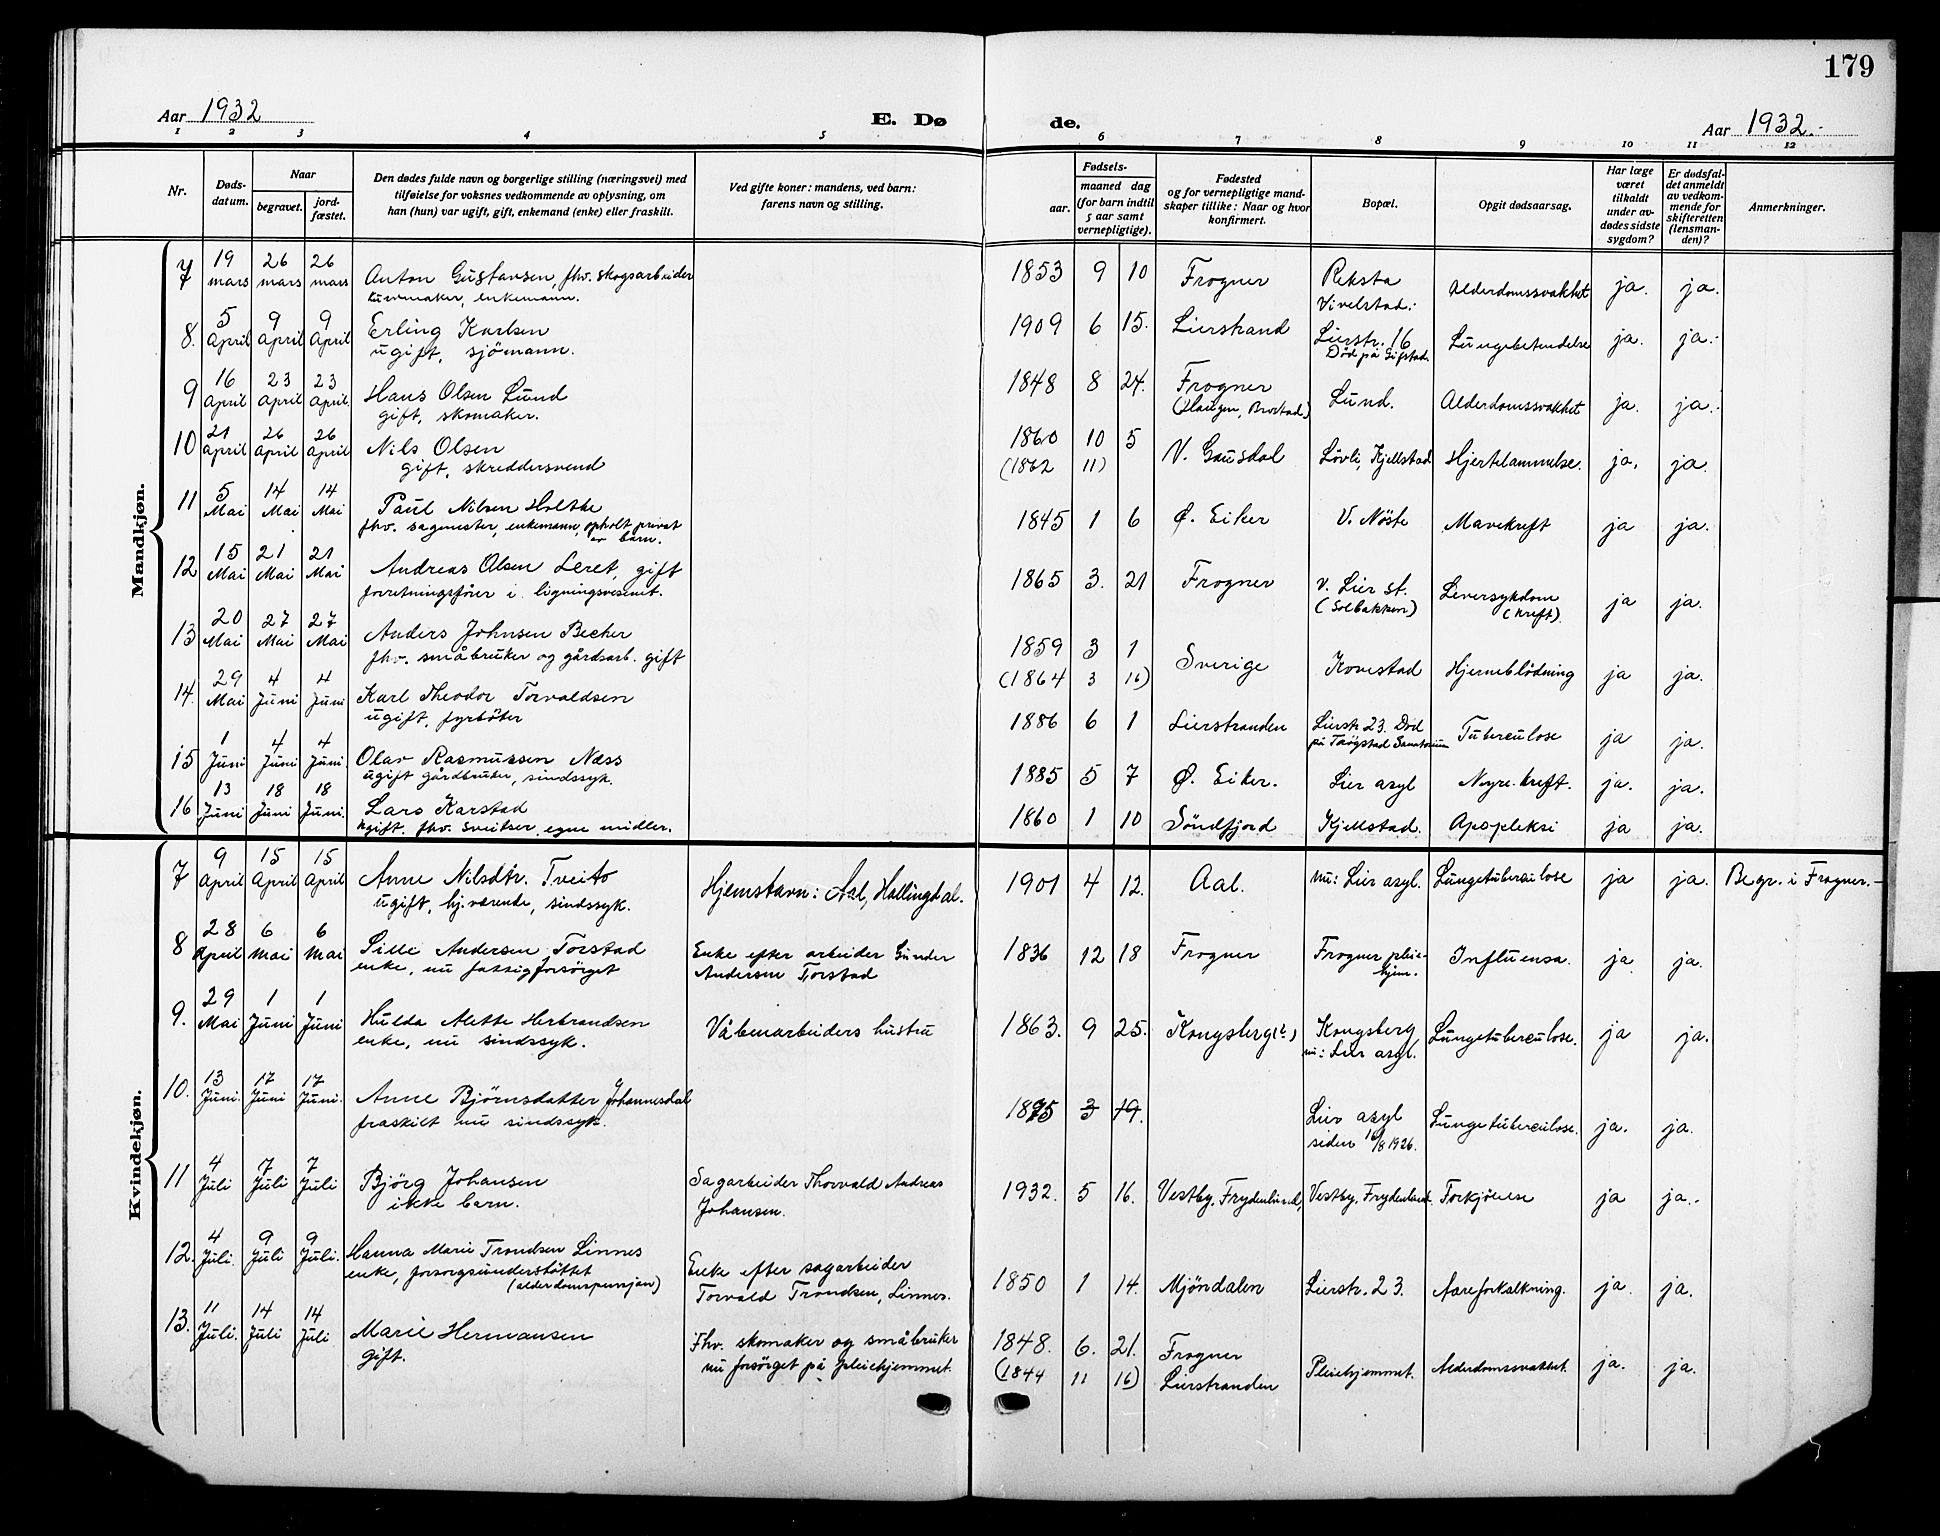 179
Aar 1932
E. Dø
de.
Aar 1932.-
1 2 3 4 5 6 7 8 9 10 11 12
Nr.
Døds-
datum.
Naar
begravet.
jord-
fæstet.
Den dødes fulde navn og borgerlige stilling (næringsvei) med
tilføielse for voksnes vedkommende av oplysning, om
han (hun) var ugift, gift, enkemand (enke) eller fraskilt.
Ved gifte koner: mandens, ved barn:
farens navn og stilling.
Fødsels-
aar.
maaned dag
(for barn indtil
5 aar samt
vernepligtige).
Fødested
og for vernepligtige mand-
skaper tillike: Naar og hvor
konfirmert.
Bopæl.
Opgit dødsaarsag.
Har læge
været
tilkaldt
under av-
dødes sidste
sygdom?
Er dødsfal-
det anmeldt
av vedkom-
mende for
skifteretten
(lensman-
den)?
Anmerkninger.
Mandkjøn.
7 19 mars 26 mars 26 mars Anton Gustavsen, fhv. skogsarbeider 1853 9 10 Frogner Reksta Alderdomssvakhet ja. ja.
enkemann. Vivelstad.
8. 5 April 9 April 9 April Erling Karlsen 1909 6 15. Lierstrand Lierstr. 16 Lungebetendelse ja. ja.-
ugift, sjömann. Död på Gifstad.
9 16 April 23 April 23 April. Hans Olsen Lund 1848 8 24. Frogner Lund. Alderdomssvakhet ja. ja.-
gift, skomaker. (Haugen, Brostad)
10 21 April 26 April 26 April Nils Olsen 1860 10 5 V. Gausdal Lövli, Kjellstad Hjertelammelse. ja. ja.
gift, skreddersvend (1862 11)
11 5 Mai 14 Mai 14 Mai Paul Nilsen Holtke 1845 1 6 Ø. Eiker V. Nöste Mavekreft ja ja.
fhv. sagmester, enkemann, opholt privat
av barn.
12 15 Mai 21 Mai 21 Mai Andreas Olsen Leret, gift 1865 3. 21 Frogner V. Lier st. Leversykdom ja ja.
forretningsförer i ligningsvesenet. (Solbakken) (Kreft).
13 20 Mai 27 Mai 27 Mai Anders Johnsen Becker 1859 3 1 Sverige Kovestad Hjerneblödning ja ja.
fhv. småbruker og gårdsarb. gift (1864 3 16)
14. 29 Mai 4 Juni 4 Juni Karl Theodor Torvaldsen 1886 6 1 Lierstranden Lierstr. 23. Död Tuberculose ja ja.
ugift, fyrböter på Trögstad Sanatorium
15 1 Juni 4 Juni 4 Juni. Olav Rasmussen Næss 1885 5 7 Ø. Eiker. Lier asyl Nyre.kreft. ja. ja.
ugift gårdbruker, sindssyk.
16 13 Juni 18 Juni 18 Juni. Lars Karstad 1860 1 10 Söndfjord Kjellstad. Apopleksi ja ja.
ugift. fhv. sveitser, egne midler.
Kvindekjøn.
7 9 April 15 April 15 April Anne Nilsdtr. Tveito Hjemstavn: Aal, Hallingdal. 1901 4 12. Aal. nu: Lier asyl. Lungetuberculose ja ja. Begr. i Frogner.-
ugift, hj.værende, sindssyk.
8 28 April 6 Mai 6 Mai Sille Andersen Torstad Enke efter arbeider Gunder 1836 12 18 Frogner Frogner pleie- Influensa. ja ja.
enke, nu fattigforsörget Andersen Torstad hjem.
9. 29 Mai 1 Juni 1 Juni Hulda Alette Herbrandsen Våbenarbeiders hustru 1863. 9 25. Kongsberg(?) Kongsberg Lungetuberculose. ja ja.
enke, nu sindssyk. nu: Lier asyl.
10. 13 Juni. 17 Juni 17 Juni. Anne Björnsdatter Johannesdal 1875 3 19. Lier asyl Lungetuberculose. ja. ja.
fraskilt nu sindssyk. siden 16/8 1926.
11 4 Juli 7 Juli 7 Juli Björg Johansen Sagarbeider Thorvald Andreas 1932. 5 16. Vestby, Frydenlund, Vestby, Frydenlund. Forkjölelse ja ja.-
ikke barn. Johansen.
12. 4 Juli. 9 Juli 9 Juli. Hanna Marie Trondsen Linnes Enke efter sagarbeider 1850 1 14. Mjöndalen Lierstr. 23. Aareforkalkning. ja. ja.
enke, forsorgsunderstöttet Torvald Trondsen, Linnes.
(alderdomspensjon)
13. 11 Juli. 14 Juli 14 Juli Marie Hermansen Fhv. skomaker og småbruker 1848. 6. 21. Frogner Pleiehjemmet. Alderdomssvakhet. ja. ja.
gift. nu forsörget på pleiehjemmet. (1844 11 16) Lierstranden